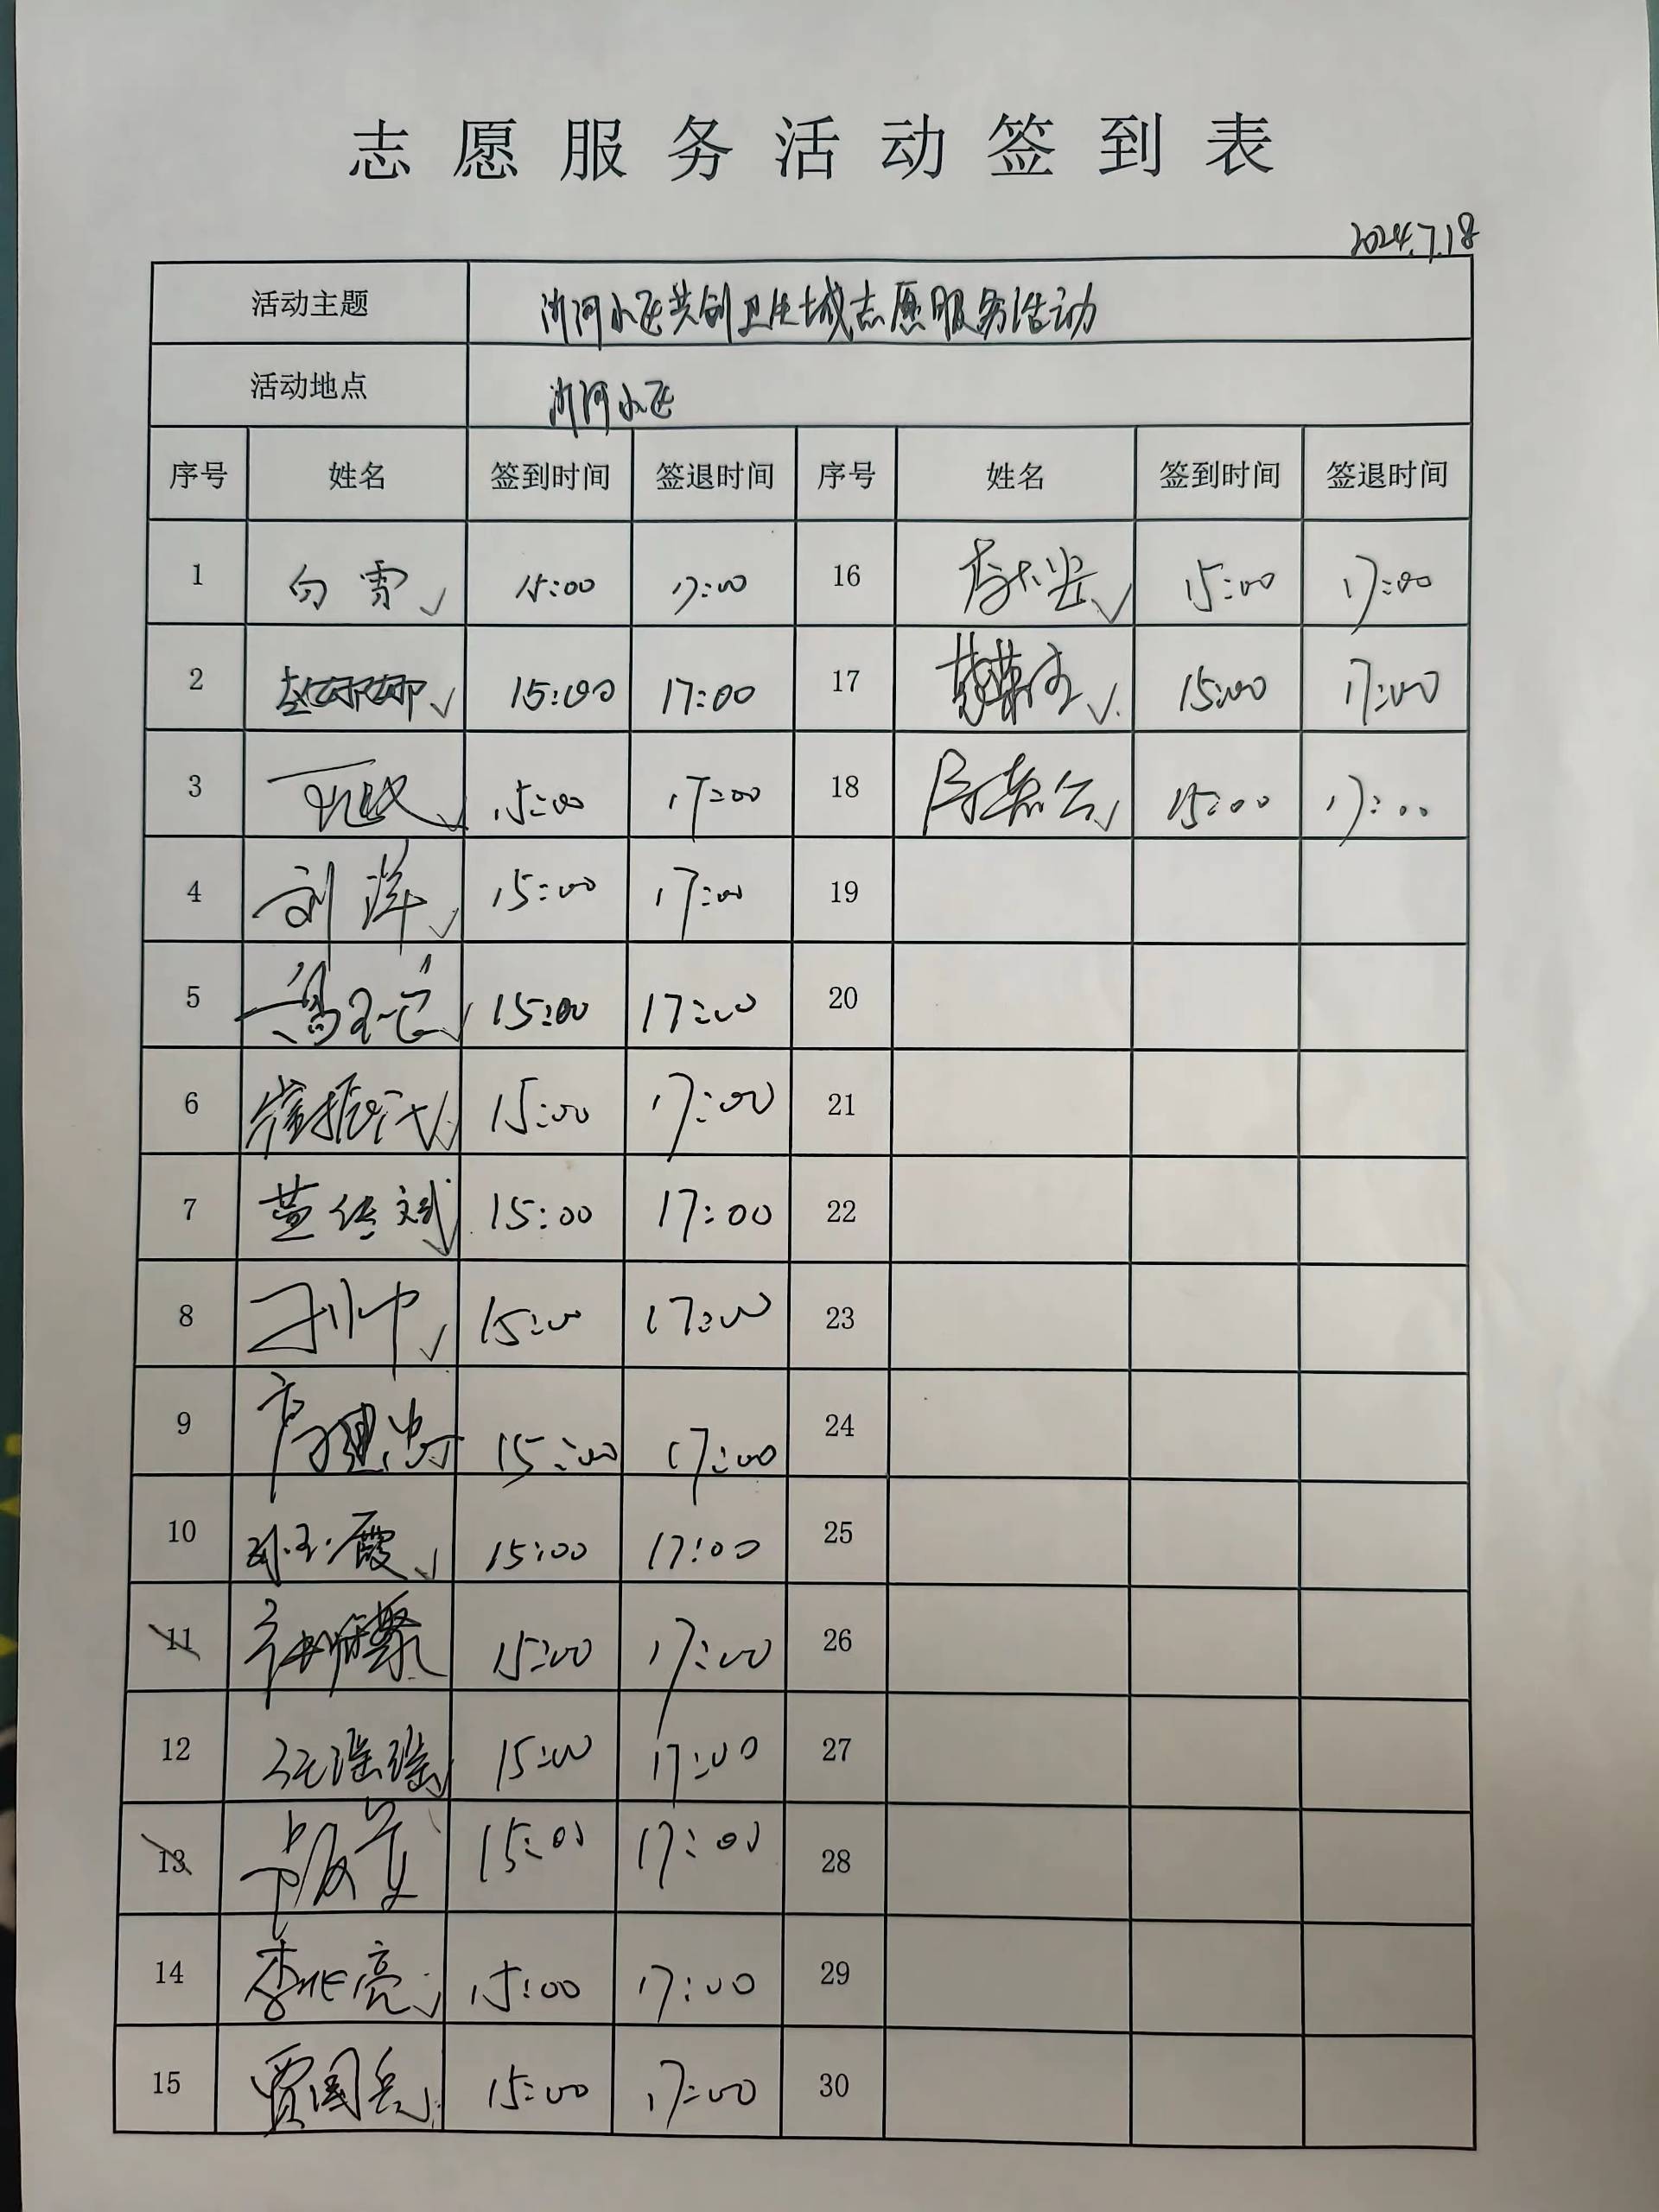 志愿服务活动签到表
2024.7.18
活动主题 沂河小区共创卫生城志愿服务活动
活动地点 沂河小区
序号 姓名 签到时间 签退时间 序号 姓名 签到时间 签退时间
1 白雪 15:00 17:00 16 15:00 17:00
2 赵娜娜 15:00 17:00 17 15:00 17:00
3 15:00 17:00 18 15:00 17:00
4 刘洋 15:00 17:00 19
5 15:00 17:00 20
6 崔振 15:00 17:00 21
7 15:00 17:00 22
8 15:00 17:00 23
9 15:00 17:00 24
10 玉霞 15:00 17:00 25
11 15:00 17:00 26
12 瑶瑶 15:00 17:00 27
13 15:00 17:00 28
14 李兆亮 15:00 17:00 29
15 贾国兵 15:00 17:00 30